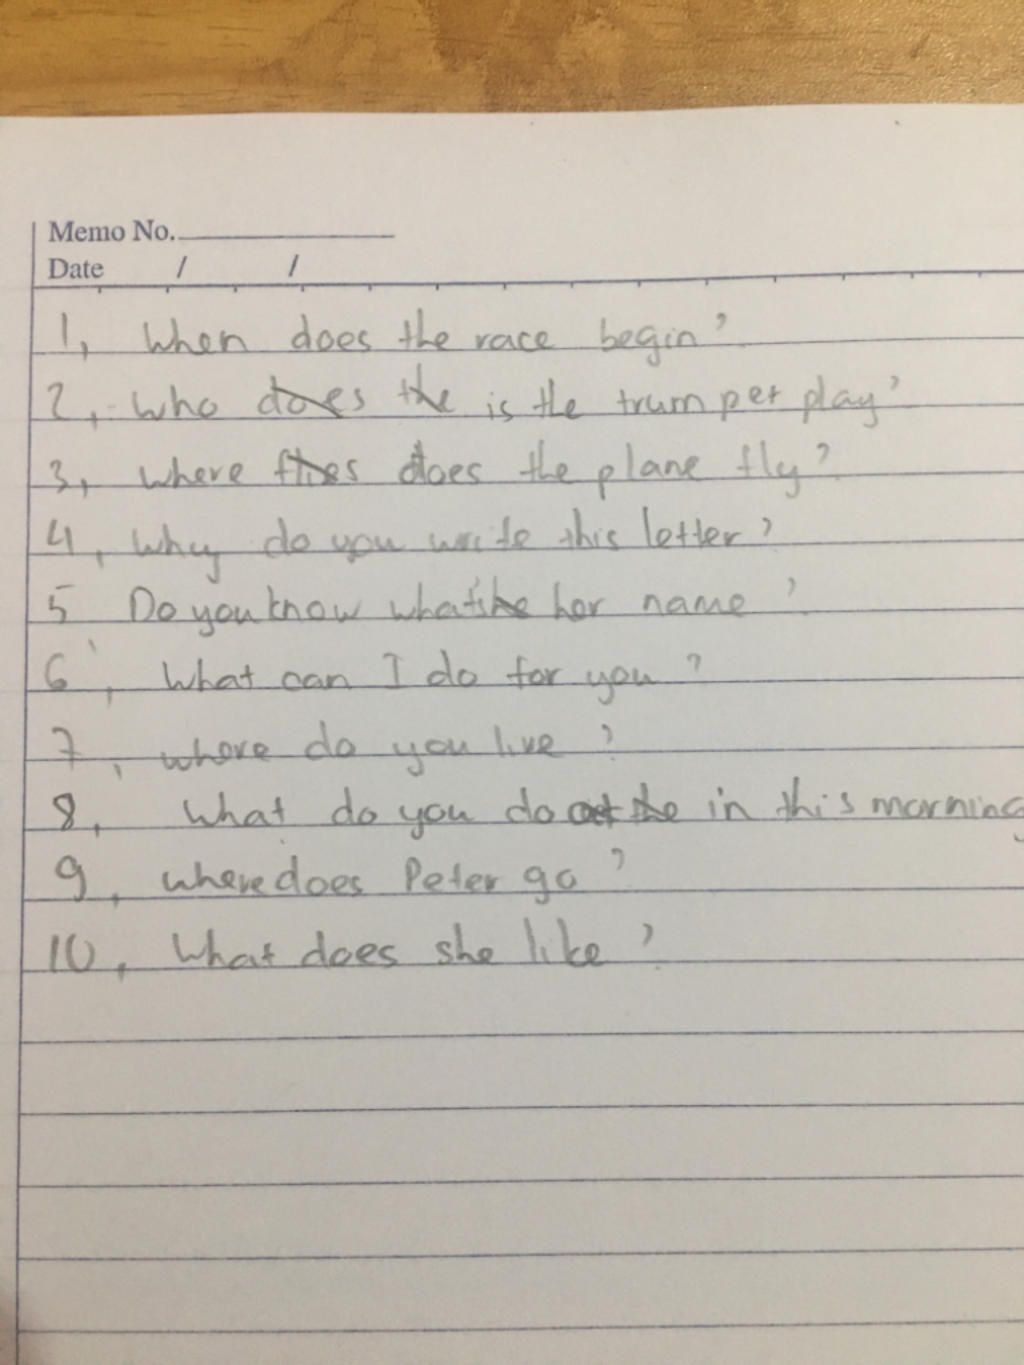 Memo No.
Date / /
1, When does the race begin?
2, Who does the is the trumpet play?
3, where flies does the plane fly?
4, Why do you write this letter?
5 Do you know what's her name?
6, What can I do for you?
7, where do you live?
8, What do you do in this morning
9, where does Peter go?
10, What does she like?